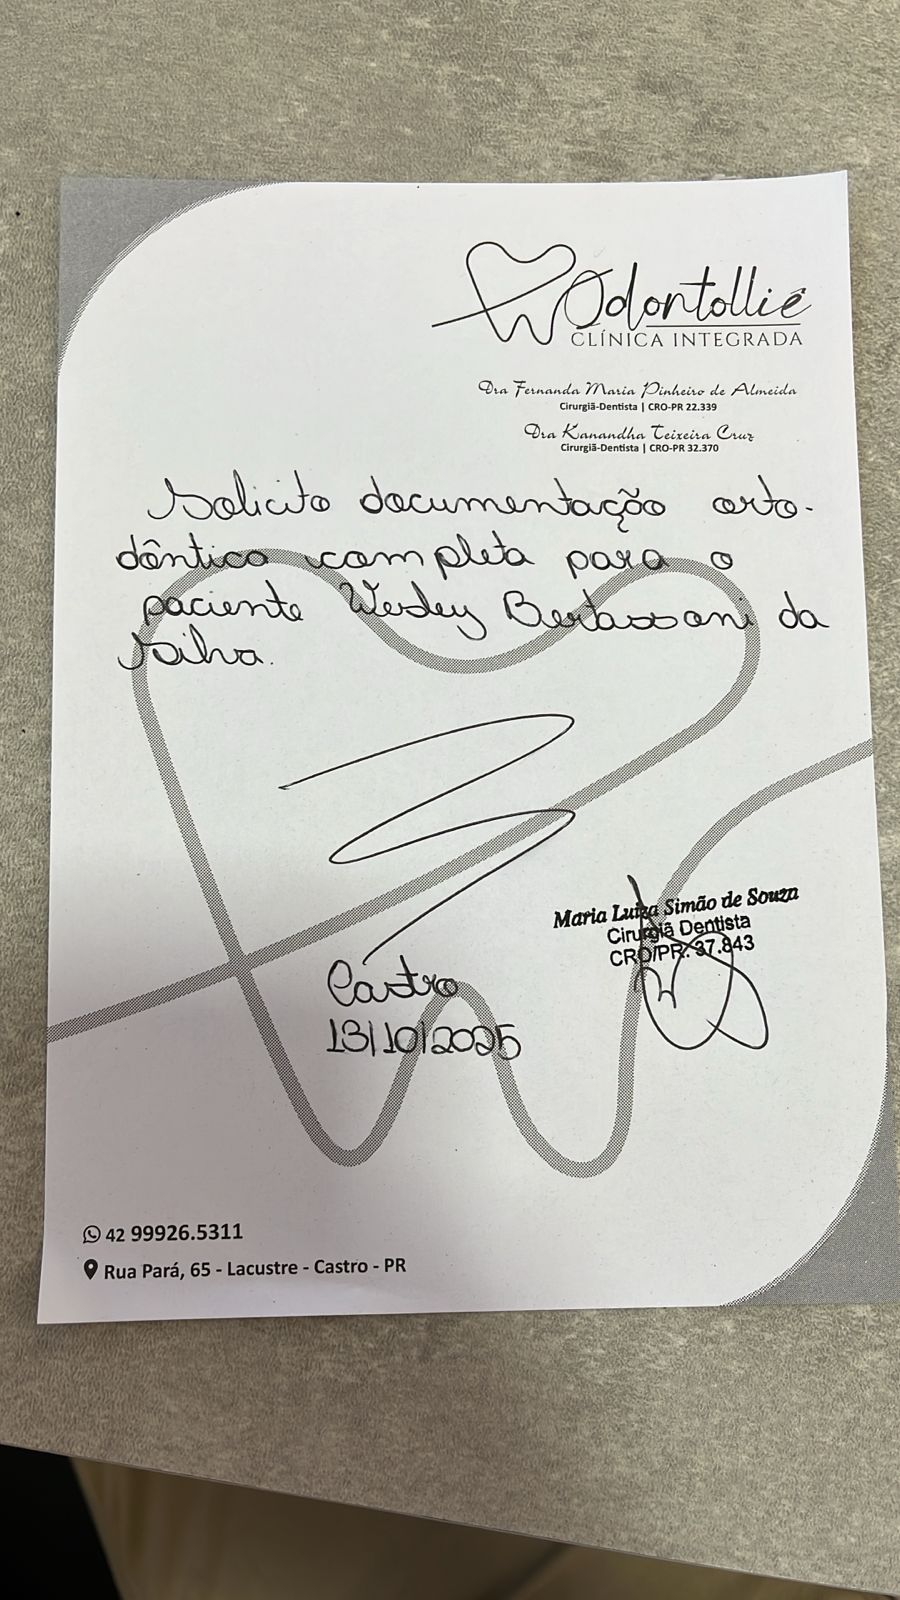 Odontolliê
CLÍNICA INTEGRADA
Dra Fernanda Maria Pinheiro de Almeida
Cirurgiã-Dentista | CRO-PR 22.339
Dra Kanandha Teixeira Cruz
Cirurgiã-Dentista | CRO-PR 32.370
Solicito documentação orto-
dôntica completa para o
paciente Wesley Bertassoni da
Silva.
Maria Luiza Simão de Souza
Cirurgiã Dentista
CRO/PR: 37.843
Castro
13/10/2025
42 99926.5311
Rua Pará, 65 - Lacustre - Castro - PR